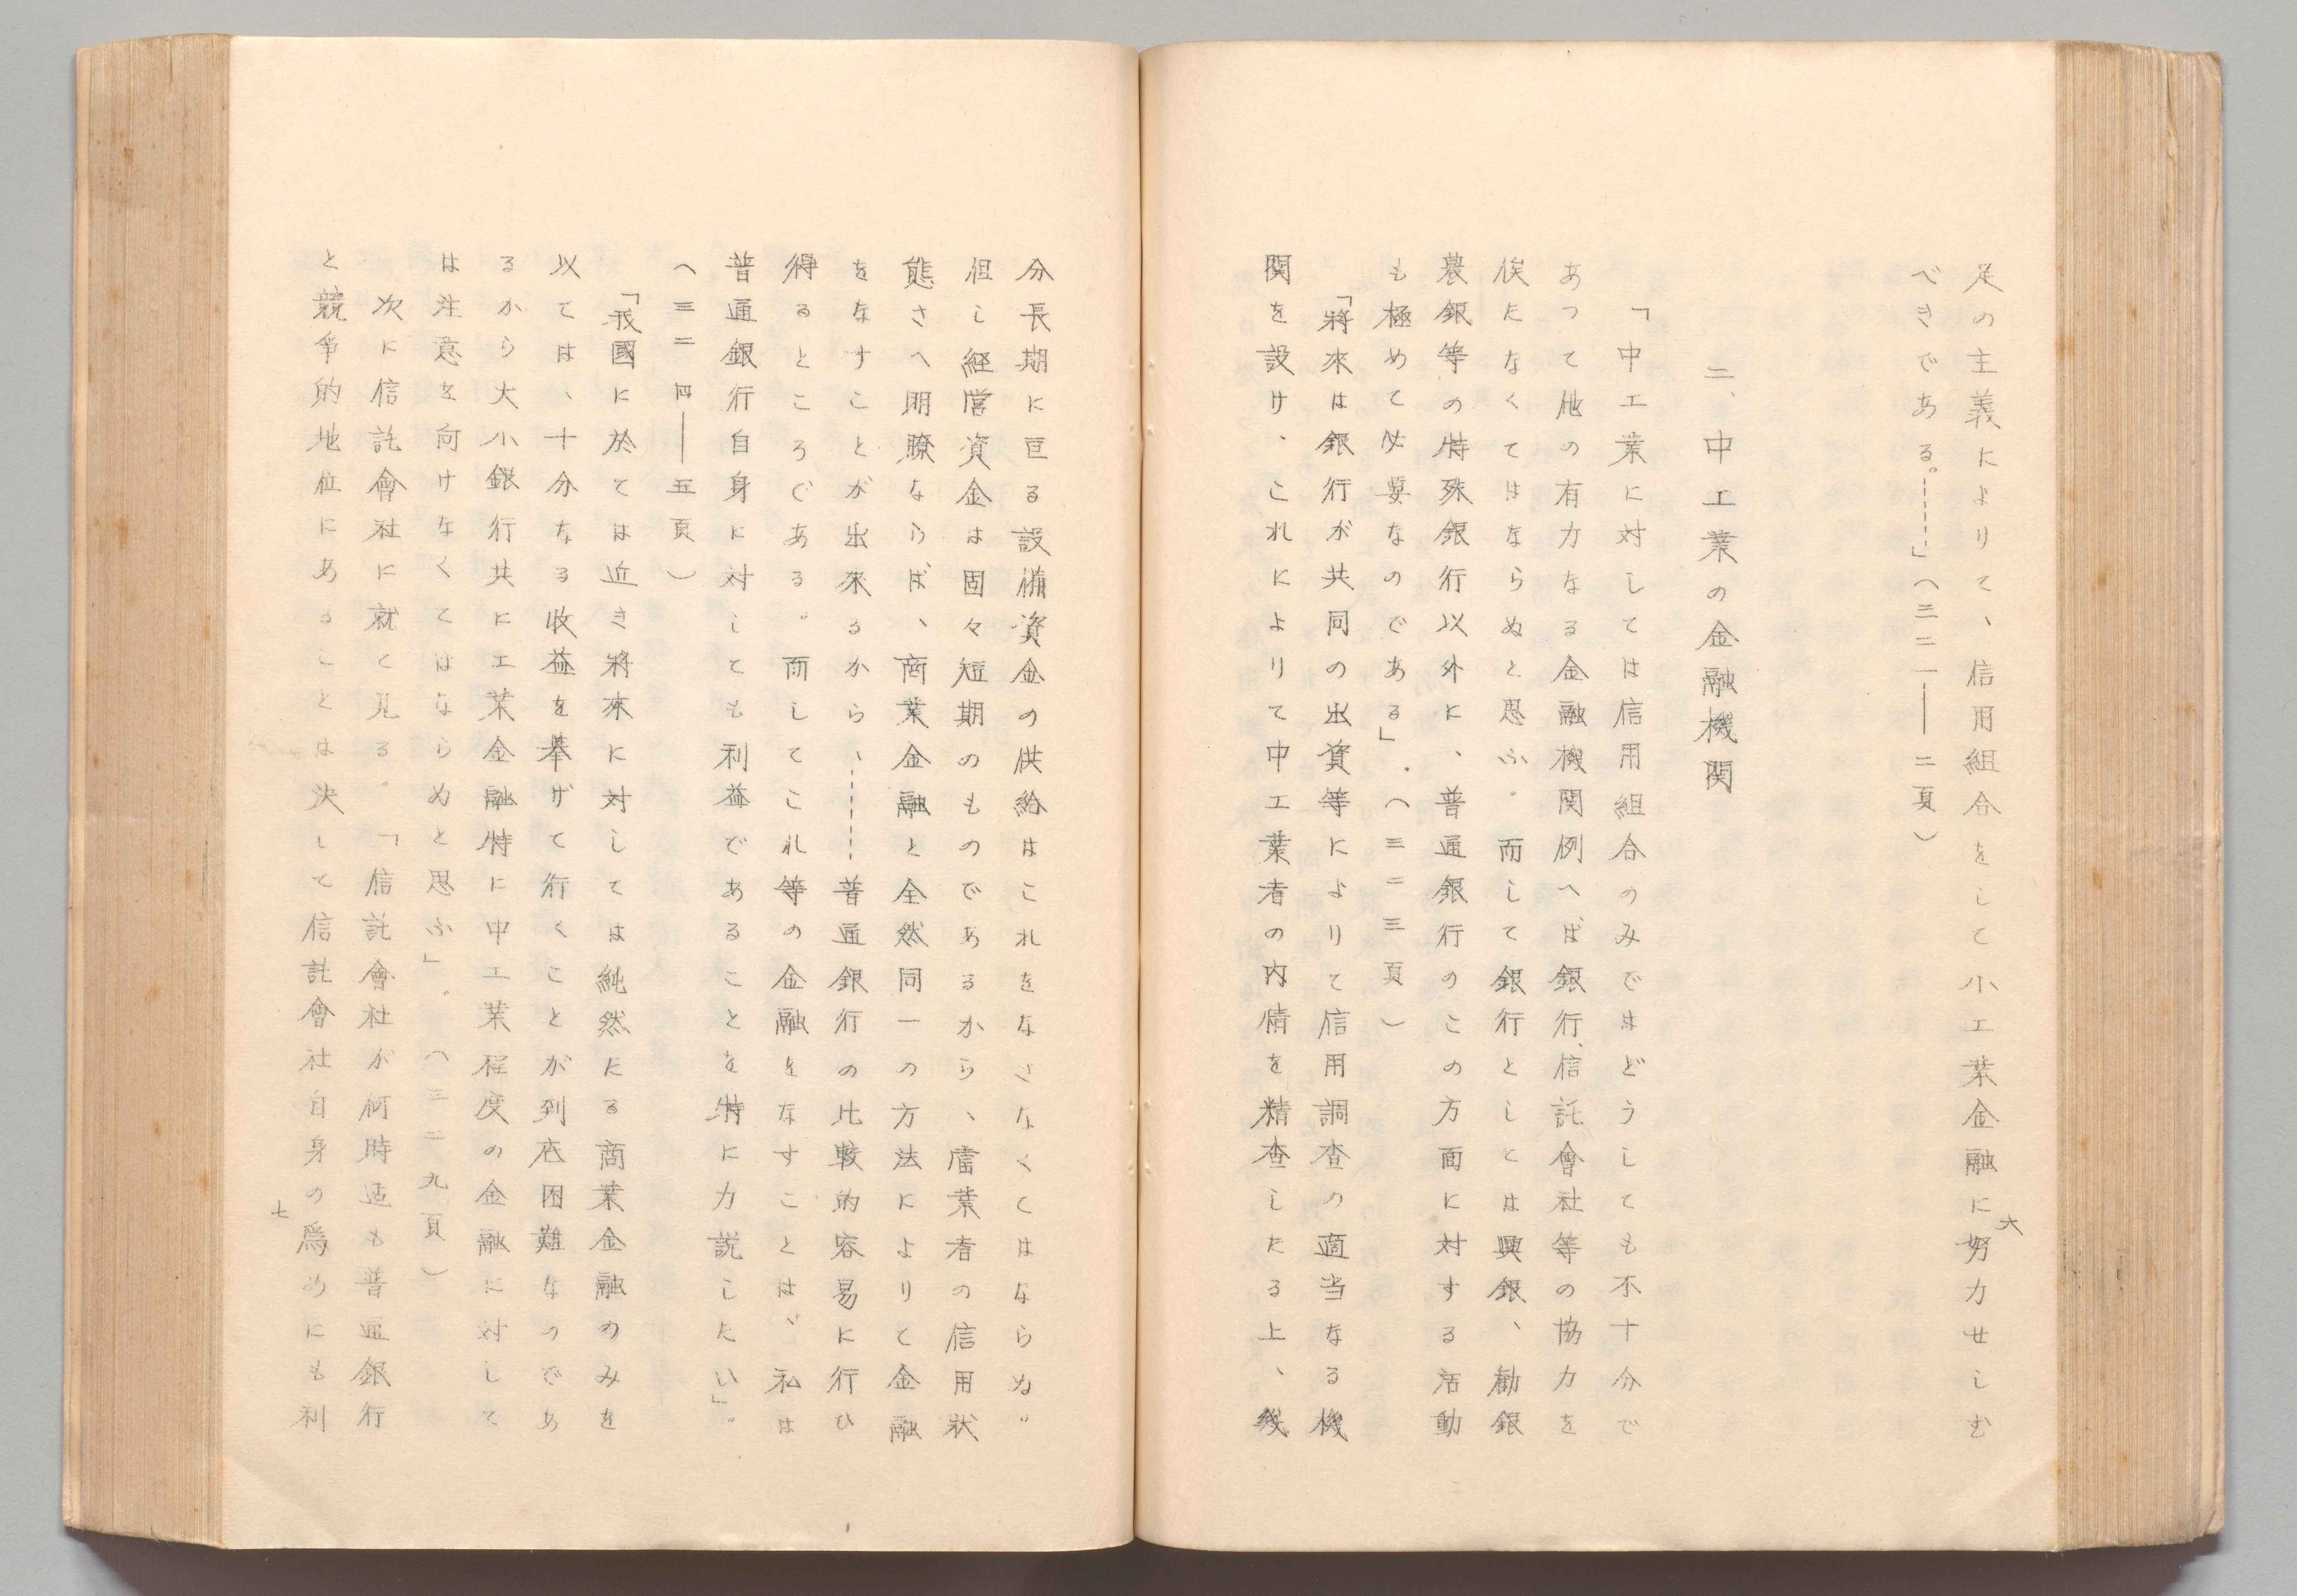 足の主義によりて、信用組合をして小工業金融に努力せしむ
べきである。………」（三二一――二頁）
二、中工業の金融機関
「中工業に対しては信用組合のみではどうしても不十分で
あつて他の有力なる金融機関例へば銀行、信託會社等の協力を
俟たなくてはならぬと思ふ。而して銀行としとは興銀、勧銀
農銀等の特殊銀行以外に、普通銀行のこの方面に対する活動
も極めて必要なのである」．（三二三頁）
「將來は銀行が共同の出資等によりて信用調査の適当なる機
関を設け、これによりて中工業者の内情を精査したる上、幾
六
分長期に亘る設備資金の供給はこれをなさなくてはならぬ。
但し経営資金は固々短期のものであるから、當業者の信用狀
態さへ明瞭ならば、商業金融と全然同一の方法によりて金融
をなすことが出來るから、………普通銀行の比較的容易に行ひ
得るところである。而してこれ等の金融をなすことは、私は
普通銀行自身に対しても利益であることを特に力説したい」。
（三二四――五頁）
「我國に於ては近き將來に対しては純然たる商業金融のみを
以ては、十分なる收益を挙げて行くことが到底困難なのであ
るから大小銀行共に工業金融特に中工業程度の金融に対して
は注意を向けなくてはならぬと思ふ」。（三二九頁）
次に信託會社に就て見る。「信託會社が何時迄も普通銀行
と競争的地位にあることは決して信託會社自身の爲めにも利
七